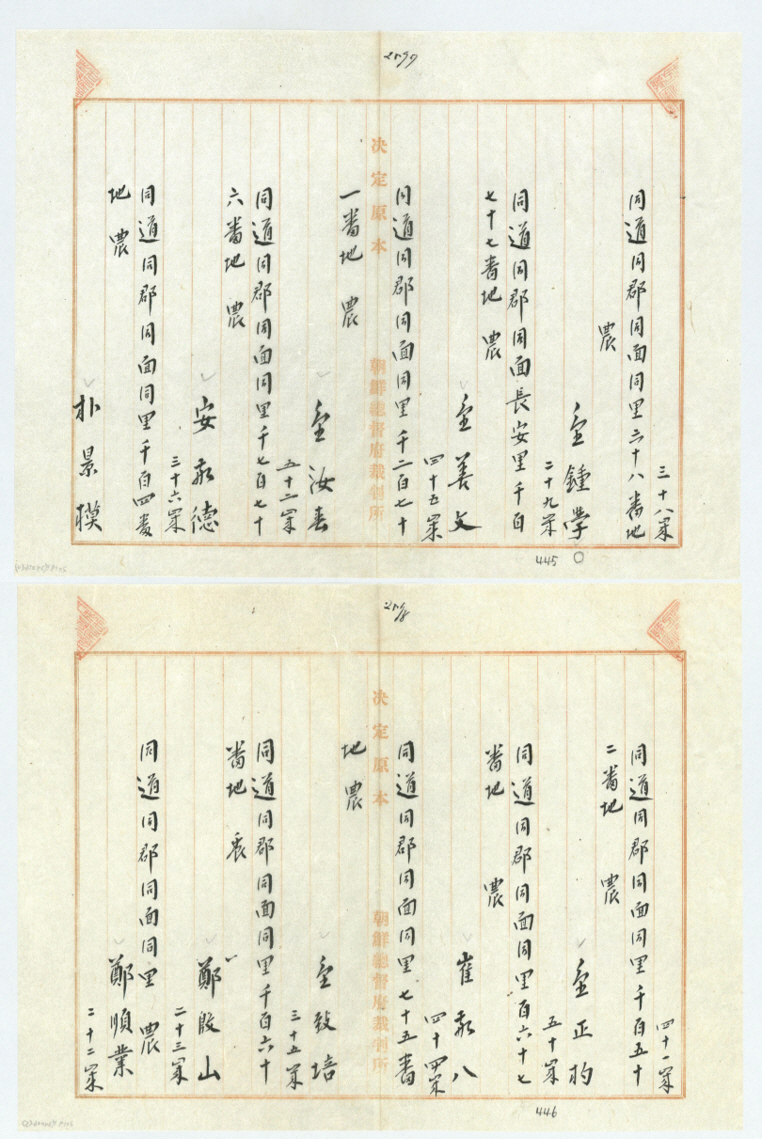 三十八歲
同道同郡同面同里六十八番地
農
金鍾學
二十九歲
同道同郡同面長安里千百
七十七番地 農
金善文
四十五歲
決定原本 朝鮮總督府裁判所
同道同郡同面同里千二百七十
一番地 農
金汝春
五十二歲
同道同郡同面同里千七百七十
六番地 農
安永德
三十六歲
同道同郡同面同里千百四番
地 農
朴景模
445
四十一歲
同道同郡同面同里千百五十
二番地 農
金正杓
五十歲
同道同郡同面同里百六十七
番地 農
崔永八
四十四歲
決定原本 朝鮮總督府裁判所
同道同郡同面同里七十五番
地 農
金致培
三十五歲
同道同郡同面同里千百六十
番地 農
鄭殷山
二十三歲
同道同郡同面同里 農
鄭順業
二十二歲
446